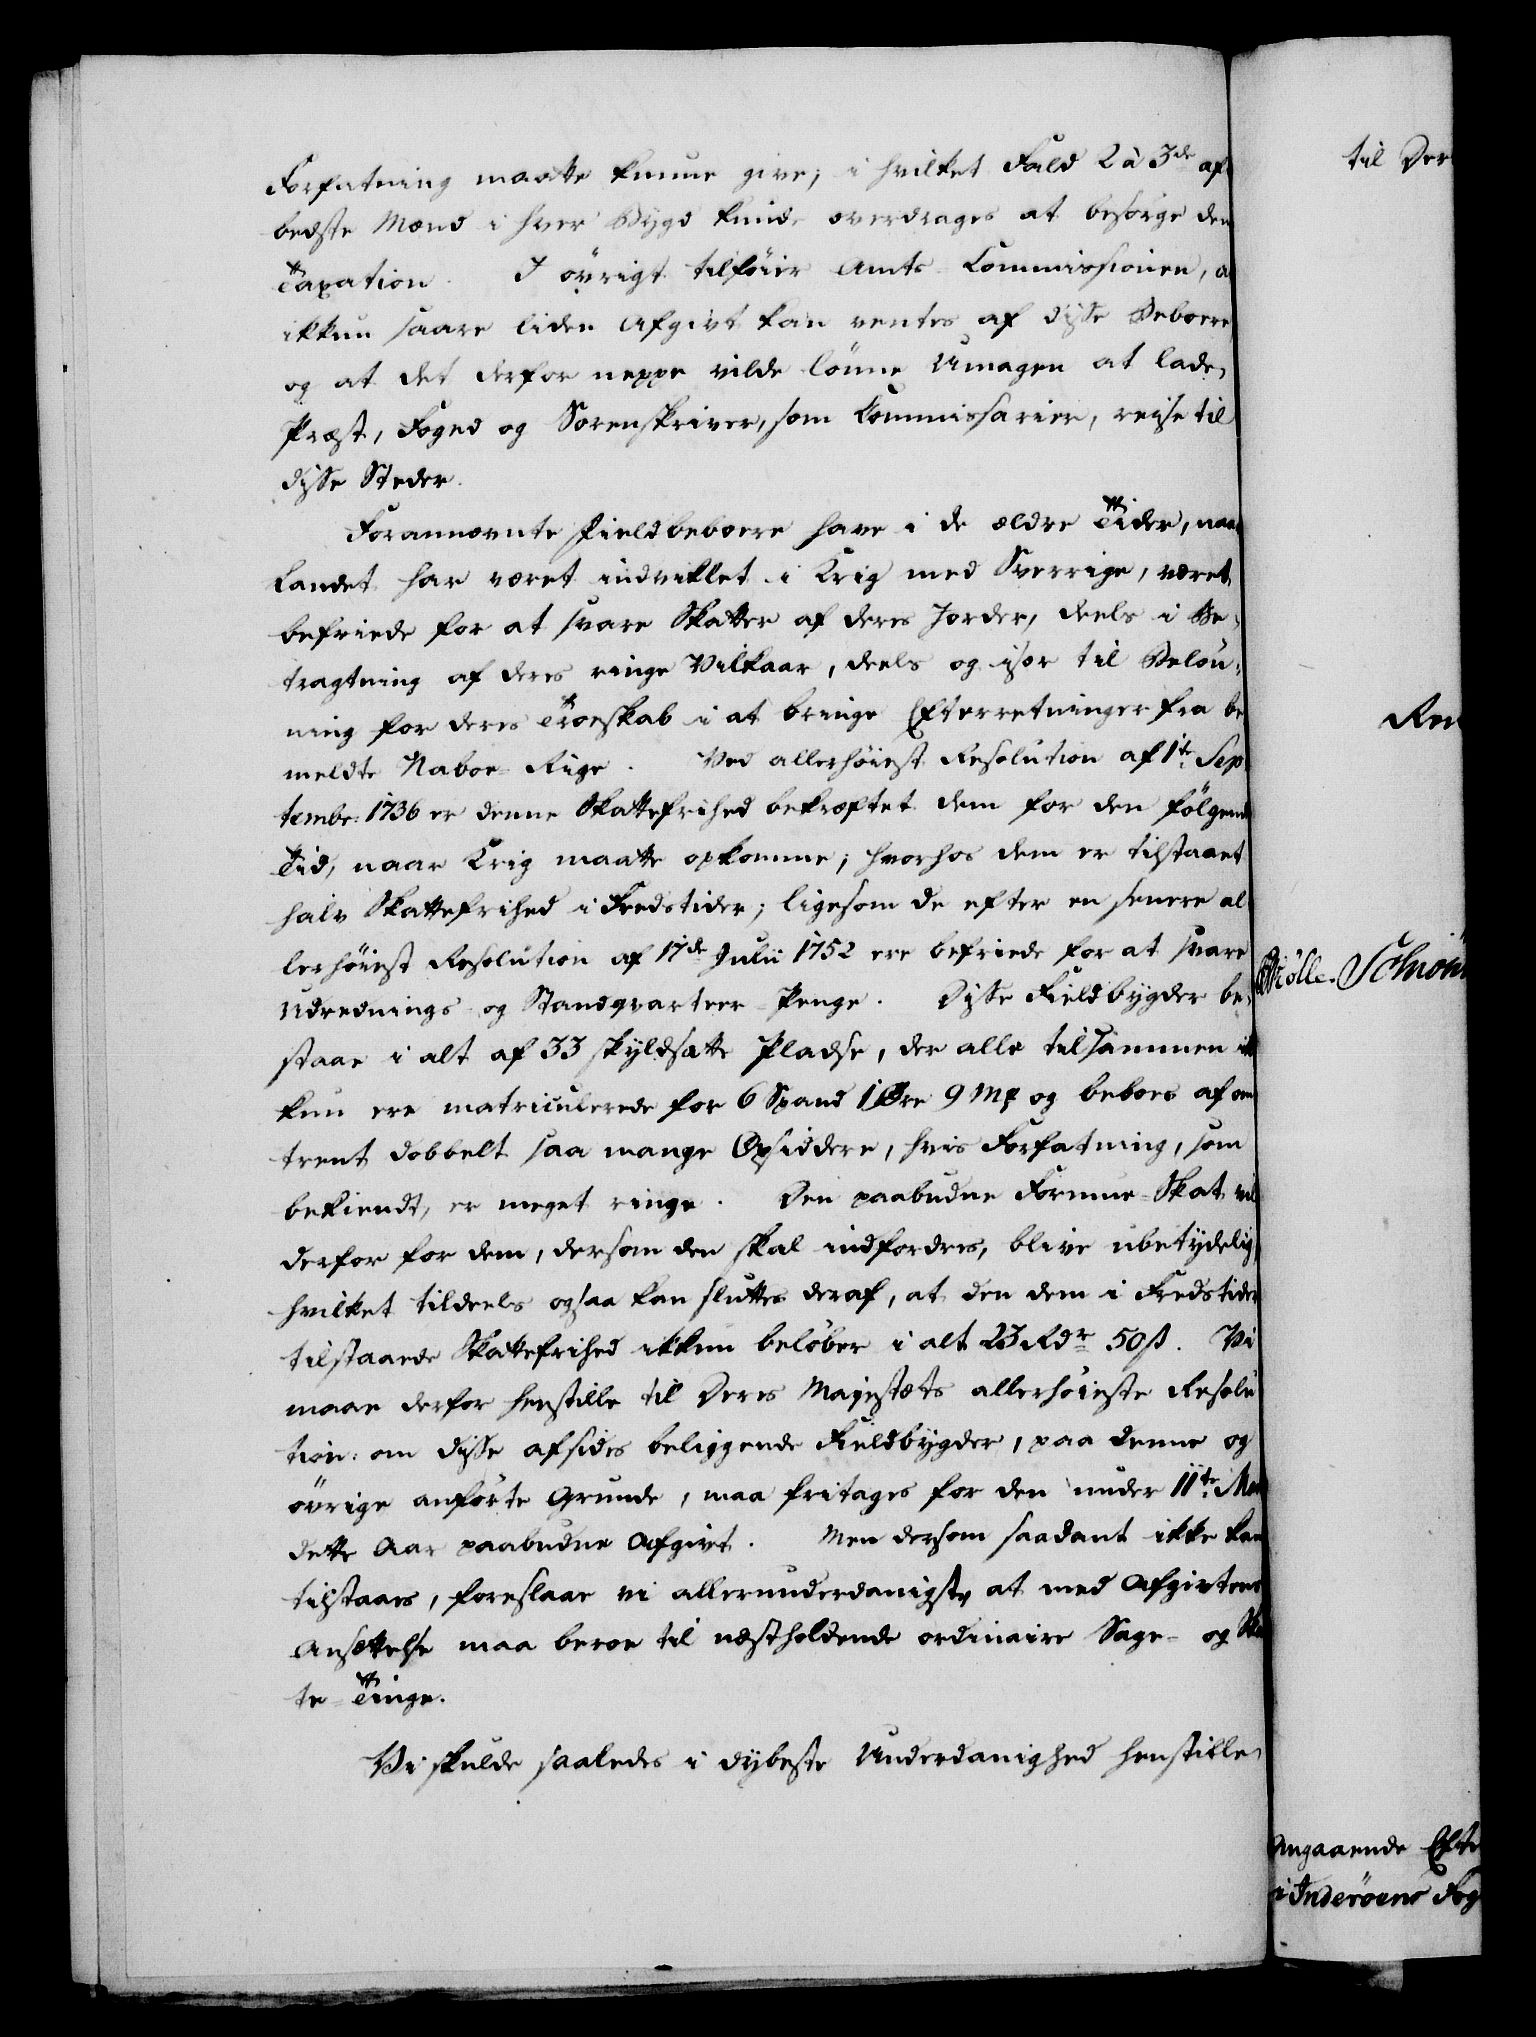 Forfatning maatte kunne give; i hvilket Fald 2 à 3de af
bedste Mænd i hver Bygd kunde overdrages at besørge den
Taxation. I øvrigt tilföier Amts-Commissionen, a
ikkun saare liden Afgivt kan ventes af disse Beboere
og at det derfor neppe vilde lönne Umagen at lade
Præst, Foged og Sorenskriver, som Commissarier, reise til
disse Steder.
Forannævnte Fieldbeboere have i de ældre Tider, naar
Landet har været indviklet i Krig med Sverrige, været
befriede for at svare Skatter af deres Jorder, deels i Be-
tragtning af deres ringe Vilkaar, deels og især til Belön-
ning for deres Troeskab i at bringe Efterretninger fra be
meldte Naboe-Rige. Ved allerhöiest Resolution af 1te Sep
tembr: 1736 er denne Skattefrihed bekræftet dem for den fölgende
Tid, naar Krig maatte opkomme; hvorhos dem er tilstaaet
halv Skattefrihed i Fredstider; ligesom de efter en senere al
lerhöiest Resolution af 17de Julii 1752 ere befriede for at svare
Udrednings- og Standqvarteer-Penge. Disse Fieldbygder be-
staae i alt af 33 skyldsatte Pladse, der alle tilsammen ik
kun ere matriculerede for 6 Spand 1 Øre 9 Mk og beboes af om
trent dobbelt saa mange Opsiddere, hvis Forfatning, som
bekiendt, er meget ringe. Den paabudne Formue-Skat vil
derfor for dem, dersom den skal indfordres, blive ubetydelig,
hvilket tildeels ogsaa kan sluttes deraf, at den dem i Fredstider
tilstaaede Skattefrihed ikkun beløber i alt 23 Rdr 50 ß. Vi
maae derfor henstille til Deres Majestæts allerhöieste Resolu
tion: om disse afsides beliggende Fieldbygder, paa denne og
övrige anförte Grunde, maa fritages for den under 11te Mar
dette Aar paabudne Afgivt. Men dersom saadant ikke kan
tilstaaes, foreslaae vi allerunderdanigst, at med Afgivtens
Ansættelse maa beroe til næstholdende ordinaire Sage- og Ska
te-Tinge.
Vi skulde saaledes i dybeste Underdanighed henstille
til Der
Ren
Mölle. Schiön
Angaaende Efte
i Inderöens Fog